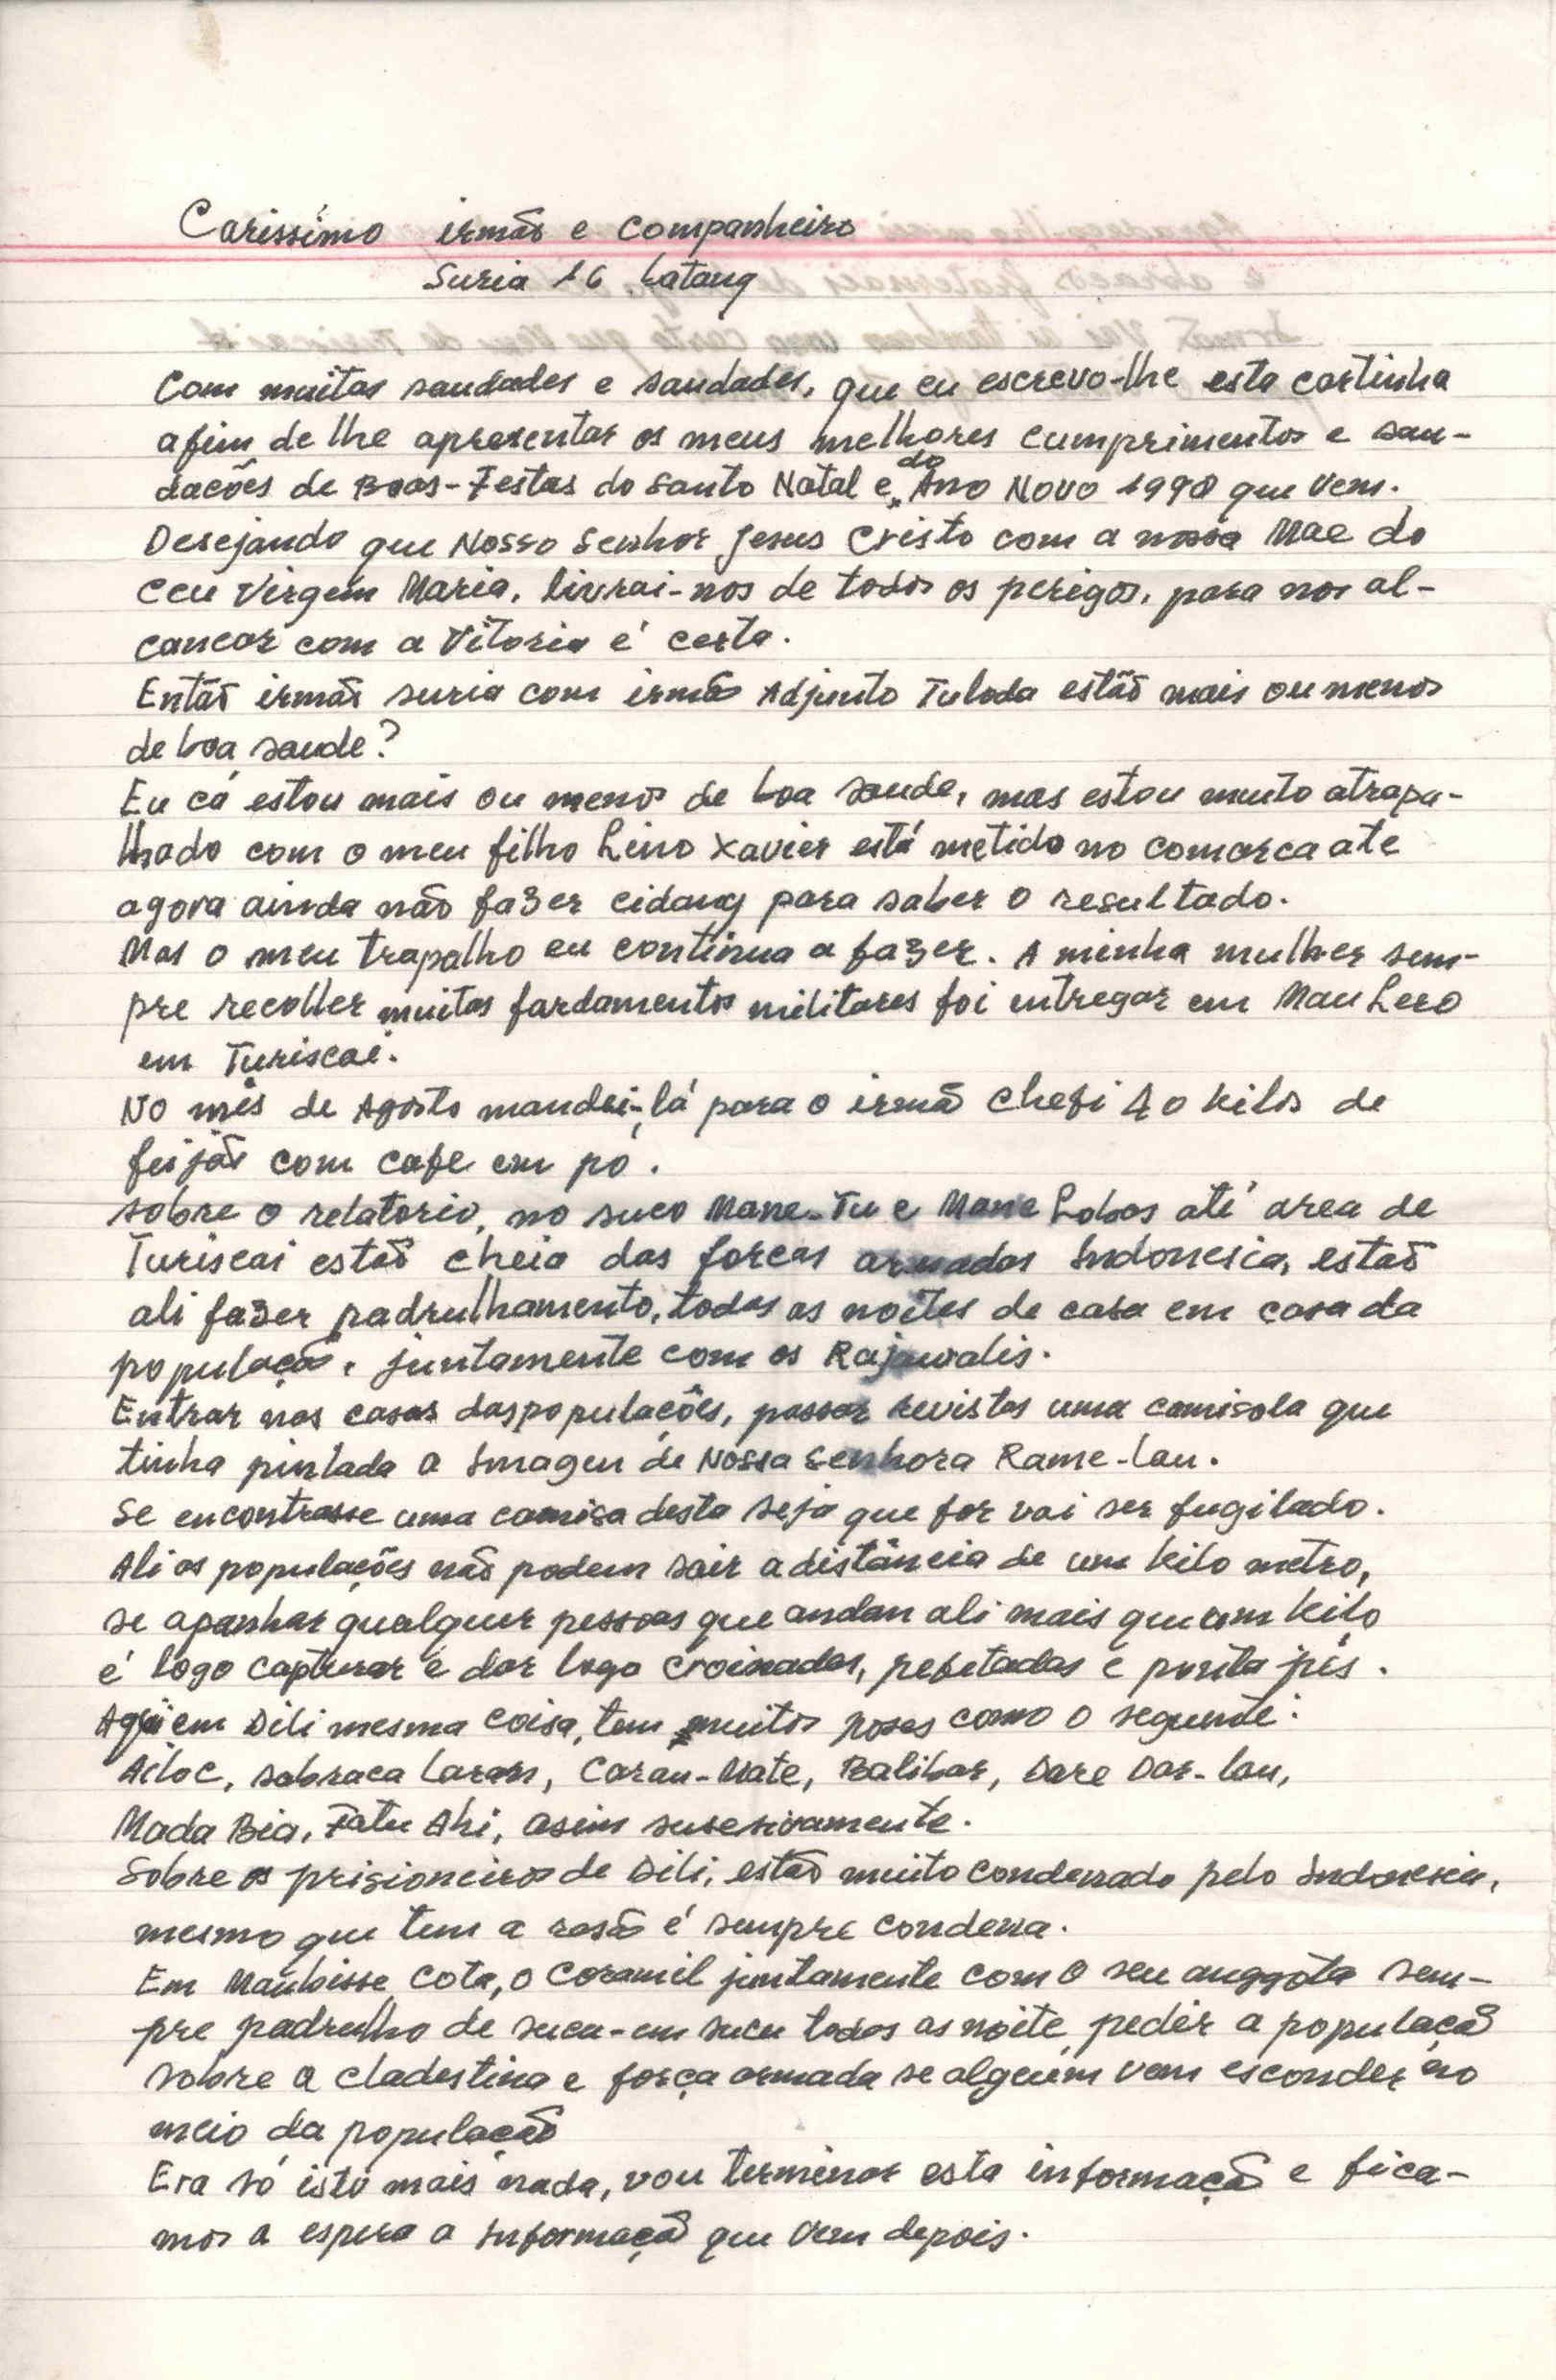 Carissímo irmão e companheiro
Suria 16. Latang
Com muitas saudades e saudades, que eu escrevo-lhe esta cartinha
afim de lhe apresentar os meus melhores cumprimentos e sau-
dacões de Boas-Festas do Santo Natal e do Ano Novo 1998 que vem.
Desejando que Nosso Senhor Jesus Cristo com a nossa Mae do
Ceu Virgem Maria, livrai-nos de todos os perigos, para nos al-
cancar com a Vitoria é certa.
Então irmão suria com irmão Adjunto Tuloda estão mais ou menos
de boa saude?
Eu cá estou mais ou menos de boa saude, mas estou muito atrapa-
lhado com o meu filho Lino Xavier está metido no comarca ate
agora ainda não fazer cidang para saber o resultado.
Mas o meu trapalho eu continua a fazer. A minha mulher sem-
pre recolher muitos fardamentos militares foi entregar em Mau Lero
em Turiscai.
No mês de Agosto mandei-lá para o irmã chefi 40 kilos de
feijão com cafe em pó.
Sobre o relatorio, no suco Mane-Tu e Mane Lobos até area de
Turiscai estão cheia das forcas armadas Indonesia, estão
ali fazer padrulhamento, todas as noites de casa em casa da
população, juntamente com os Rajawalis.
Entrar nas casas das populações, passar revistas uma camisola que
tinha pintada a Imagen de Nossa Senhora Rame-lau.
Se encontrasse uma camisa desta seja que for vai ser fugilado.
Ali as populações não podem sair a distância de um kilo metro,
se apanhar qualquer pessoas que andan ali mais que um kilo
é logo capturar e dar logo croinadas, pefetadas e ponta pés.
Aqui em Dili mesma coisa, tem muitos poses como o segunte:
Ailoc, Sabraca Laran, Carau-Mate, Balibar, Dare Dar-lau,
Mada Bia, Fatu Ahi, asim susesivamente.
Sobre os prisioneiros de Dili, estão muito condenado pelo Indonesia,
mesmo que tem a rasão é sempre condena.
Em Maubisse Cota, o Coramil juntamente com o seu anggota sem-
pre padrulho de sucu-em sucu todos as noite pedir a população
sobre a cladestina e força armada se alguem vem esconder no
meio da população
Era só isto mais nada, vou terminar esta informação e fica-
mos a espera a Informação que vem depois.